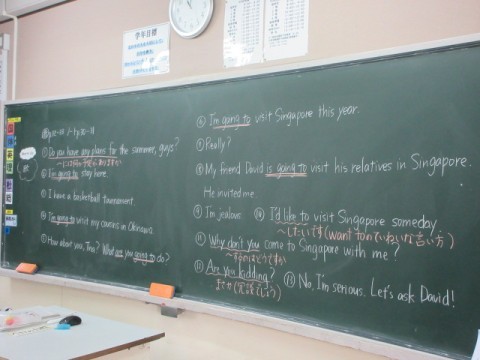 学年目標
① Do you have any plans for the summer, guys?
② I'm going to stay here.
③ I have a basketball tournament.
④ I'm going to visit my cousins in Okinawa.
⑤ How about you, Tina? What are you going to do?
⑥ I'm going to visit Singapore this year.
⑦ Really?
⑧ My friend David is going to visit his relatives in Singapore.
He invited me.
⑨ I'm jealous. ⑩ I'd like to visit Singapore someday.
~したいです(want toのていねいな言い方)
⑪ Why don't you come to Singapore with me?
~するのはどうですか
⑫ Are you kidding? ⑬ No, I'm serious. Let's ask David!